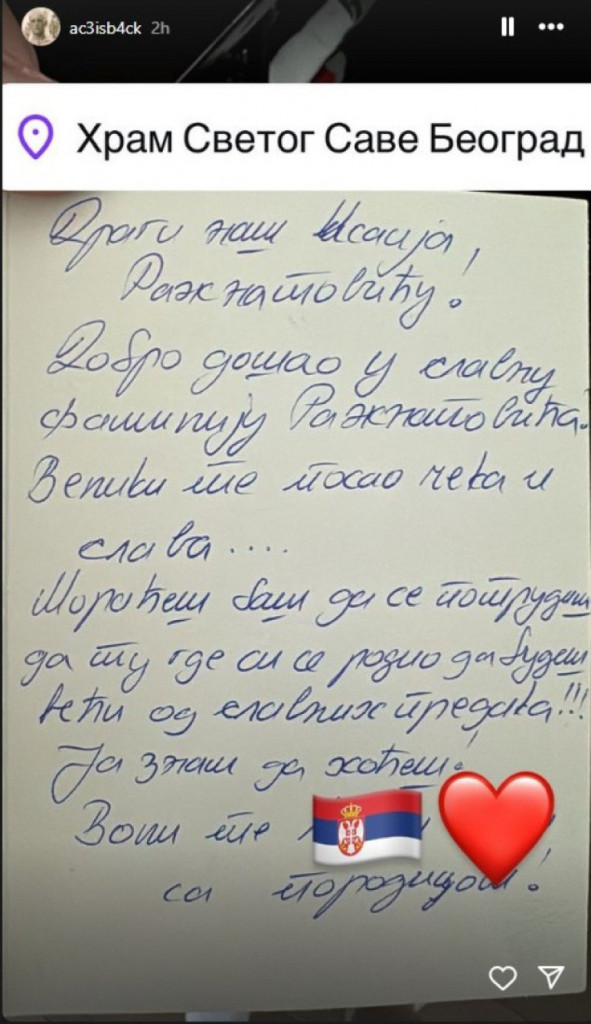 ac3isb4ck 2h
Храм Светог Саве Београд
Драги наш Исаија,
Ражнатовићу!
Добро дошао у славну
фамилију Ражнатовића!
Велики те посао чека и
слава....
Мораћеш баш да се потрудиш
да ту где си се родио да будеш
већи од славних предака!!!
Ја знам да хоћеш!
Воли те
са породицом!